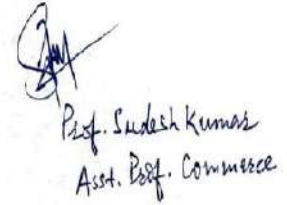 Prof. Sudesh Kumar
Asst. Prof. Commerce